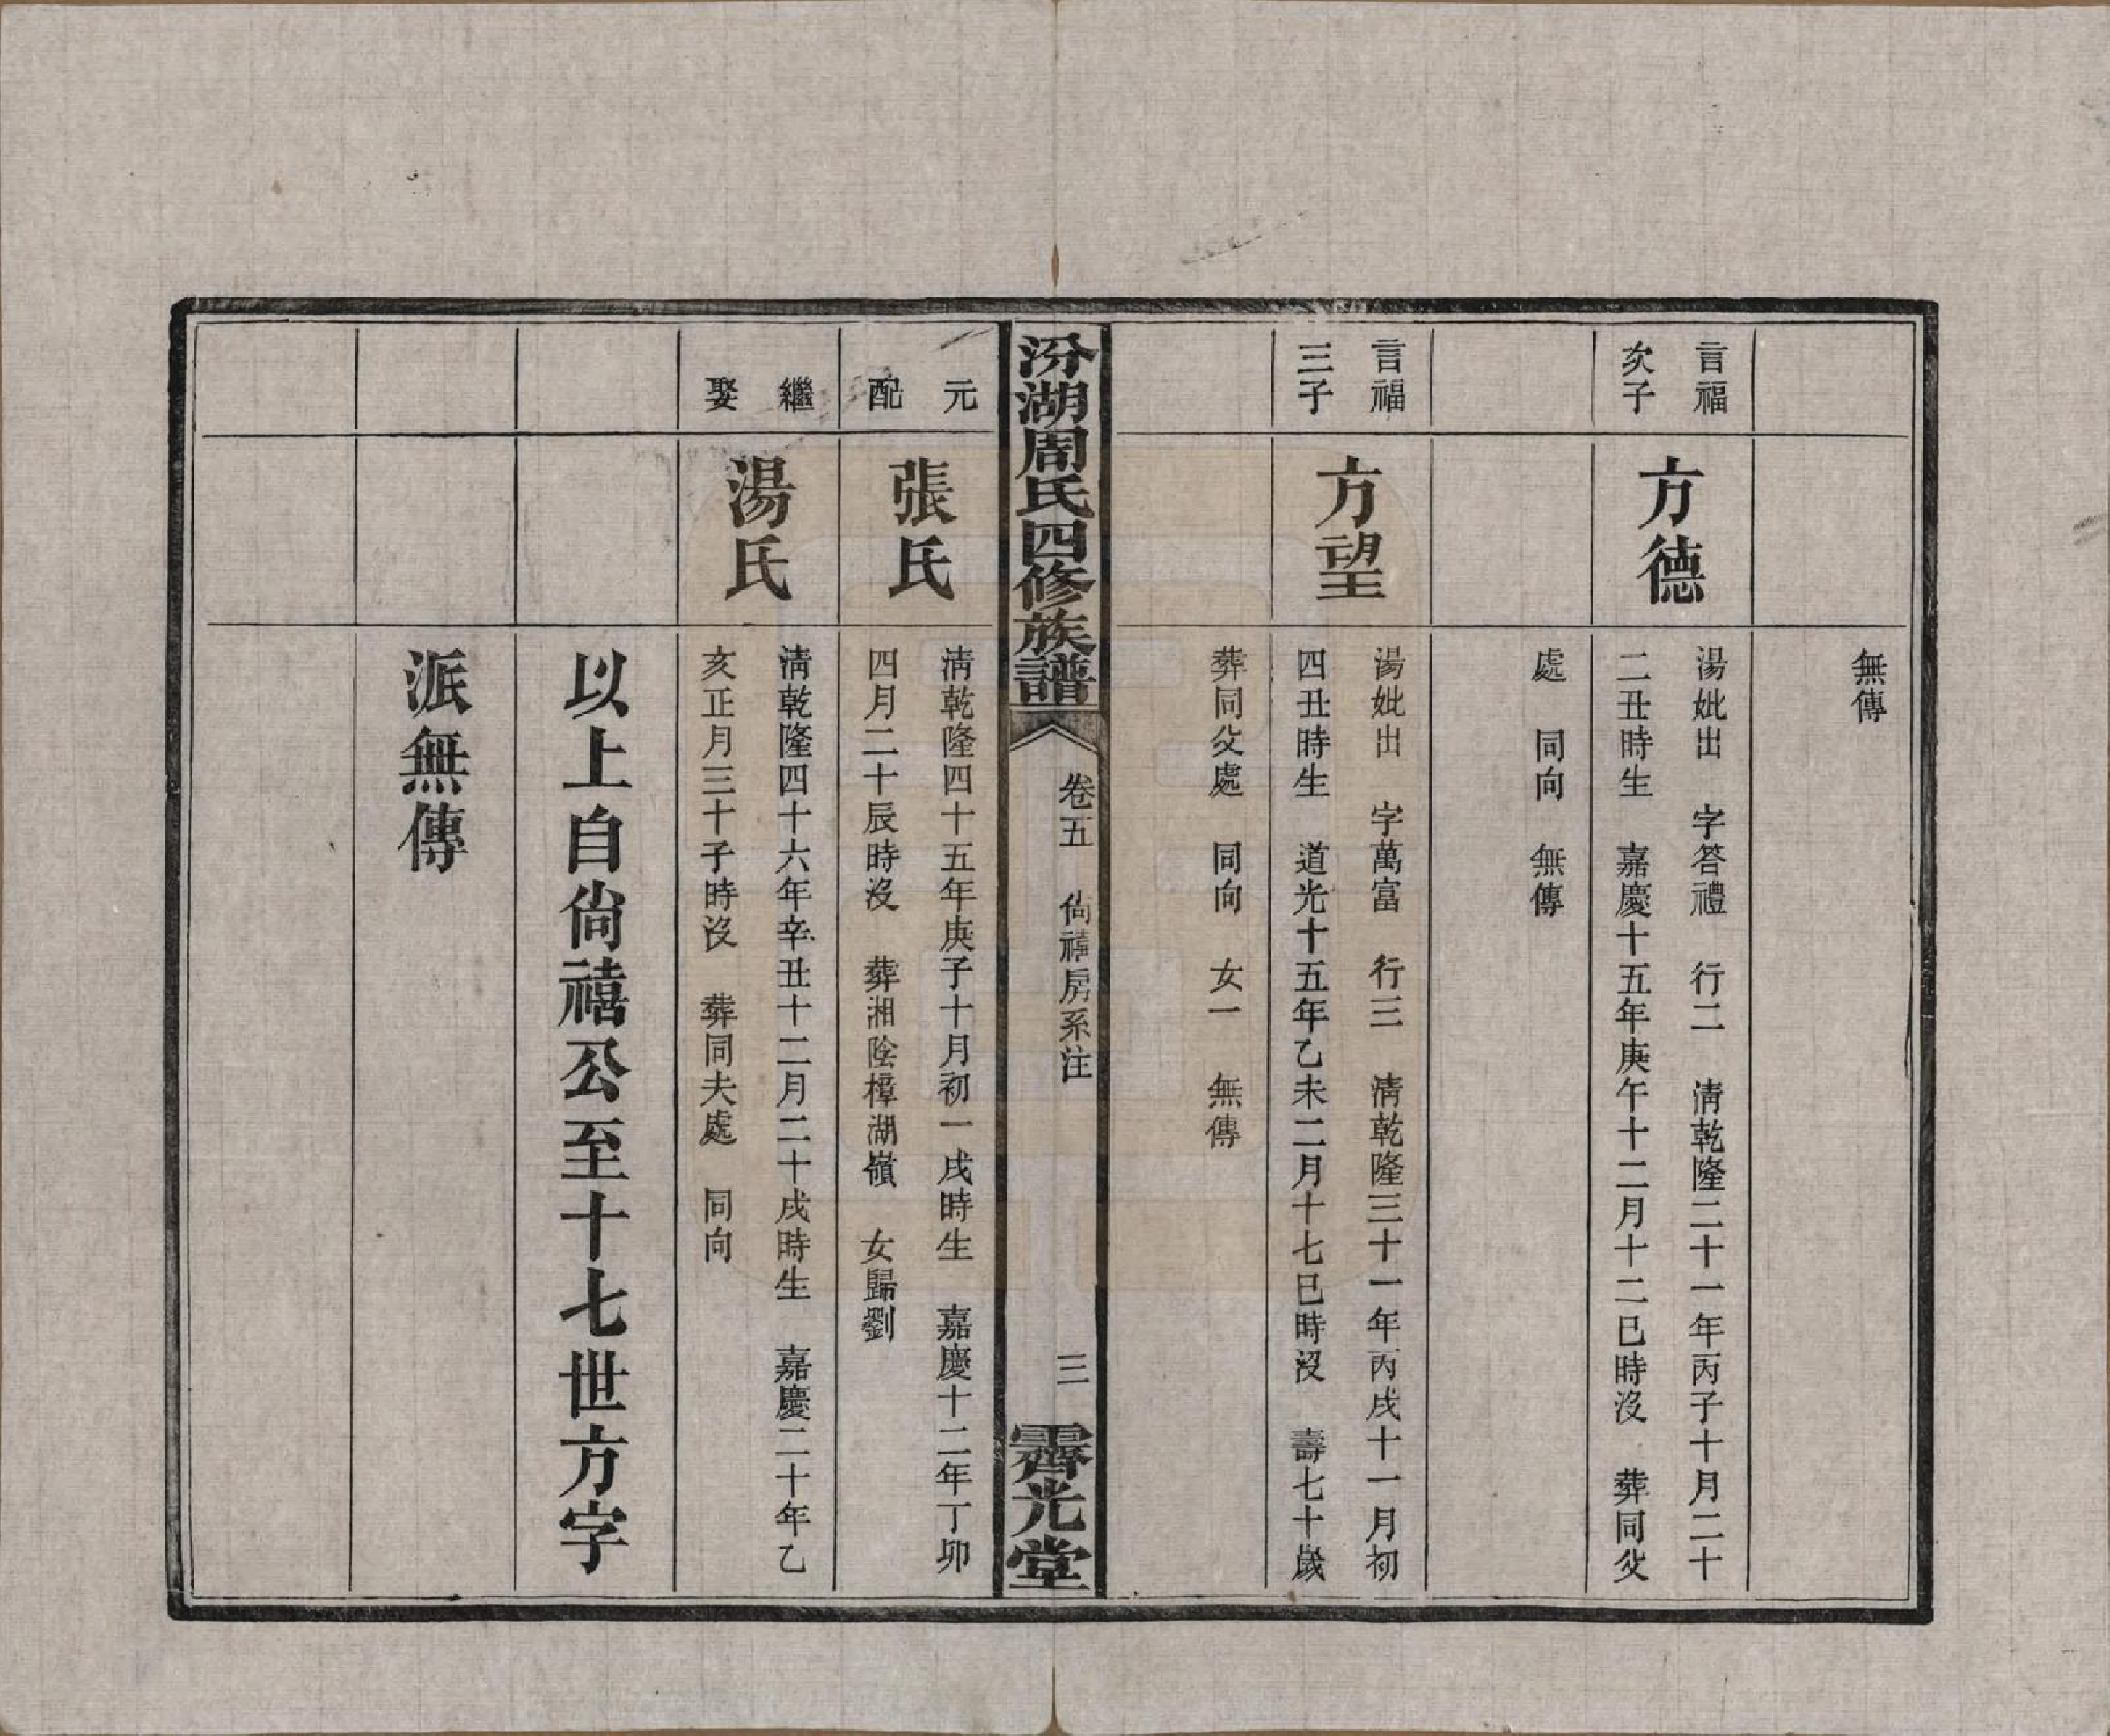 無傳
言福
次子
方德
湯妣出 字答禮 行二 淸乾隆二十一年丙子十月二十
二丑時生 嘉慶十五年庚午十二月十二巳時沒 葬同父
處 同向 無傳
言福
三子
方望
湯妣出 字萬富 行三 淸乾隆三十一年丙戌十一月初
四丑時生 道光十五年乙未二月十七巳時沒 壽七十歲
葬同父處 同向 女一 無傳
汾湖周氏四修族譜
卷五 尙禧房系注
三
霽光堂
元
配
張氏
淸乾隆四十五年庚子十月初一戌時生 嘉慶十二年丁卯
四月二十辰時沒 葬湘陰樟湖嶺 女歸劉
繼
娶
湯氏
淸乾隆四十六年辛丑十二月二十戌時生 嘉慶二十年乙
亥正月三十子時沒 葬同夫處 同向
以上自尙禧公至十七世方字
派無傳